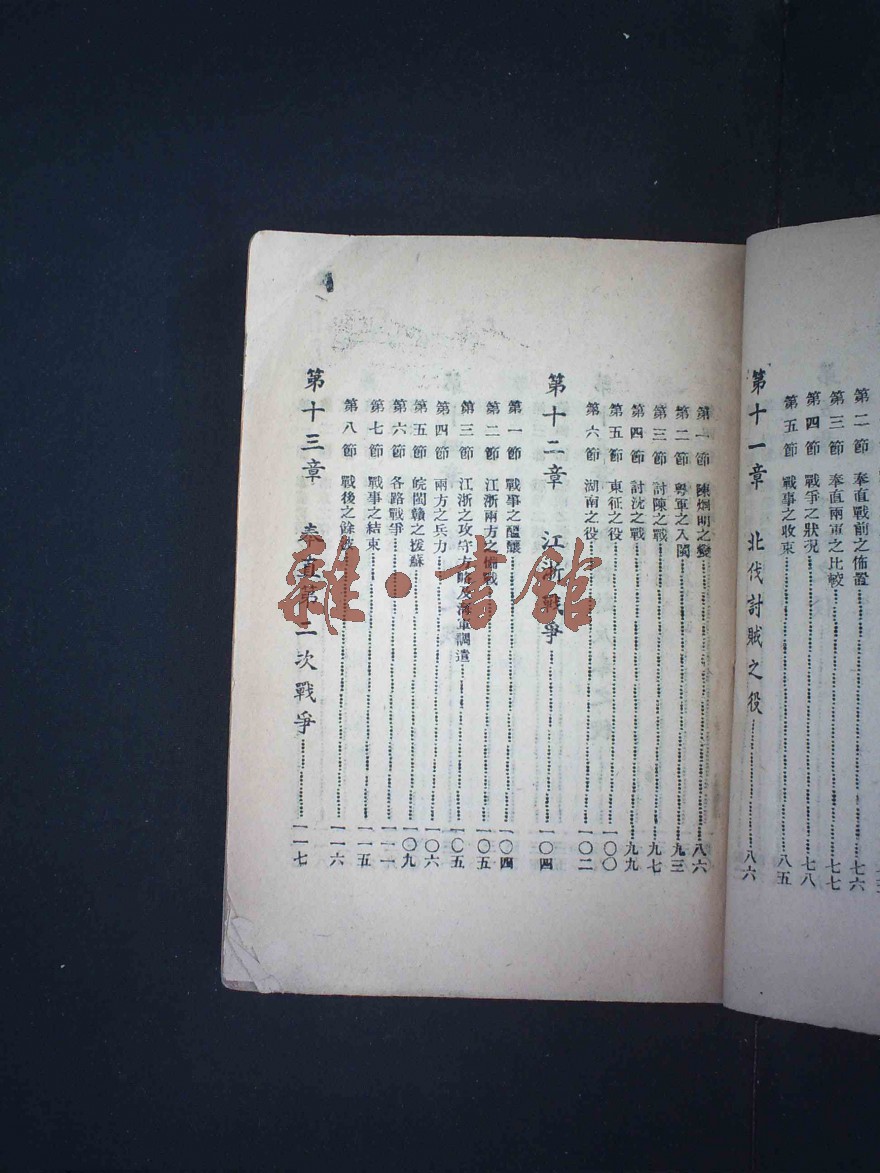 第二節 奉直戰前之佈置……七六
第三節 奉直兩軍之比較……七七
第四節 戰爭之狀況……七八
第五節 戰事之收束……八五
第十一章 北伐討賊之役……八六
第一節 陳烱明之變……八六
第二節 粵軍之入閩……九三
第三節 討陳之戰……九七
第四節 討沈之戰……九九
第五節 東征之役……一〇〇
第六節 湖南之役……一〇二
第十二章 江浙戰爭……一〇四
第一節 戰事之醞釀……一〇四
第二節 江浙兩方之備戰……一〇五
第三節 江浙之攻守方略及海軍調遣……一〇五
第四節 兩方之兵力……一〇六
第五節 皖閩贛之援蘇……一〇九
第六節 各路戰爭……一一一
第七節 戰事之結束……一一五
第八節 戰後之餘波……一一六
第十三章 奉直第二次戰爭……一一七
雜·書館